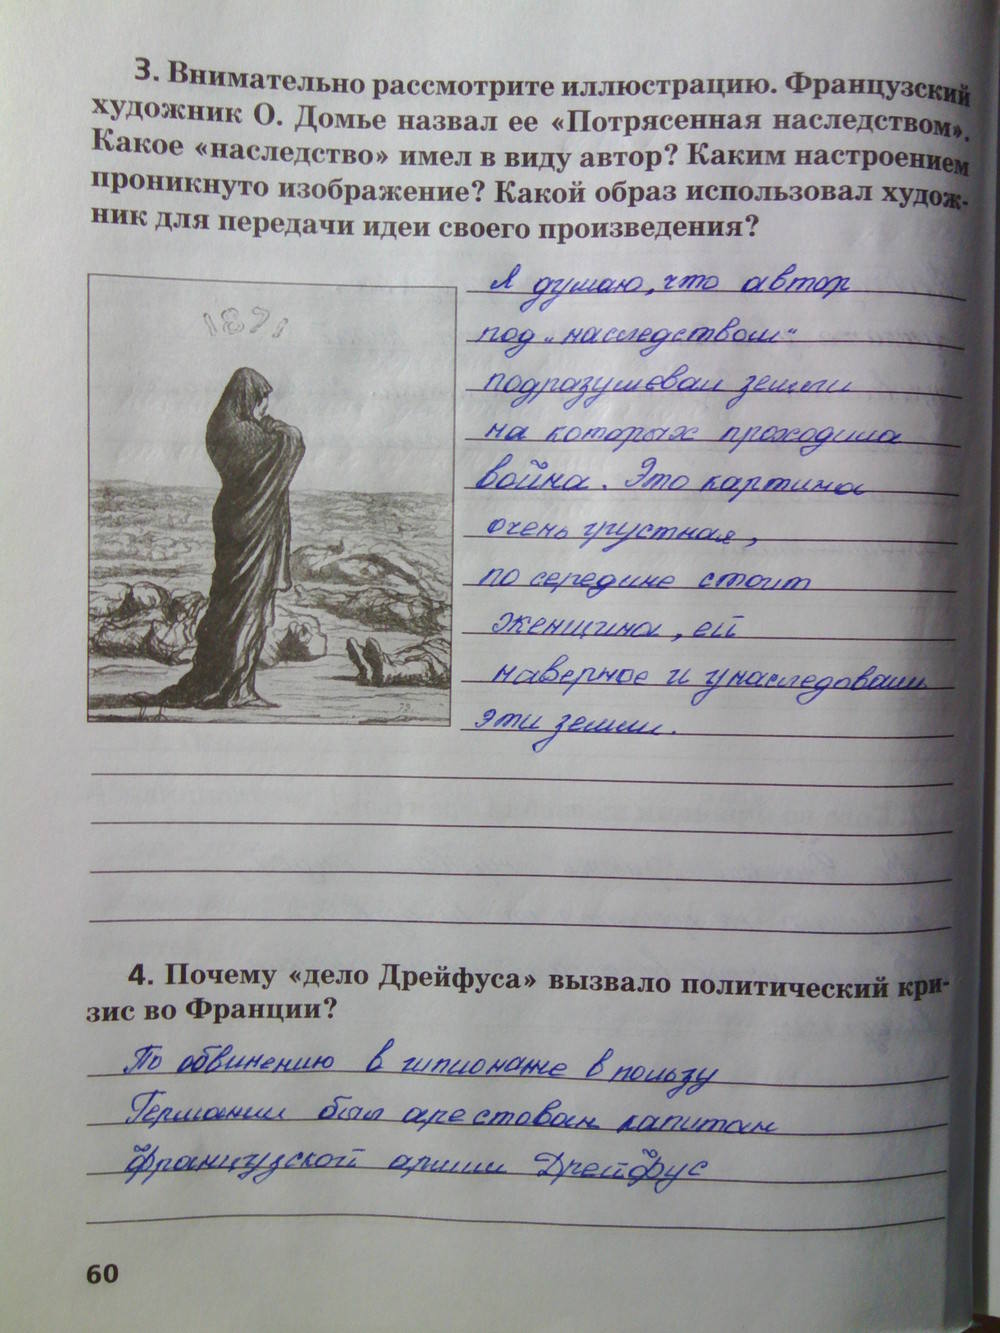 3. Внимательно рассмотрите иллюстрацию. Французский
художник О. Домье назвал ее «Потрясенная наследством».
Какое «наследство» имел в виду автор? Каким настроением
проникнуто изображение? Какой образ использовал худож-
ник для передачи идеи своего произведения?
1871
Я думаю, что автор
под „наследством“
подразумевал земли
на которых проходила
война. Это картина
очень грустная,
по середине стоит
женщина, ей
наверное и унаследовали
эти земли.
4. Почему «дело Дрейфуса» вызвало политический кри-
зис во Франции?
По обвинению в шпионаже в пользу
Германии был арестован капитан
французской армии Дрейфус
60